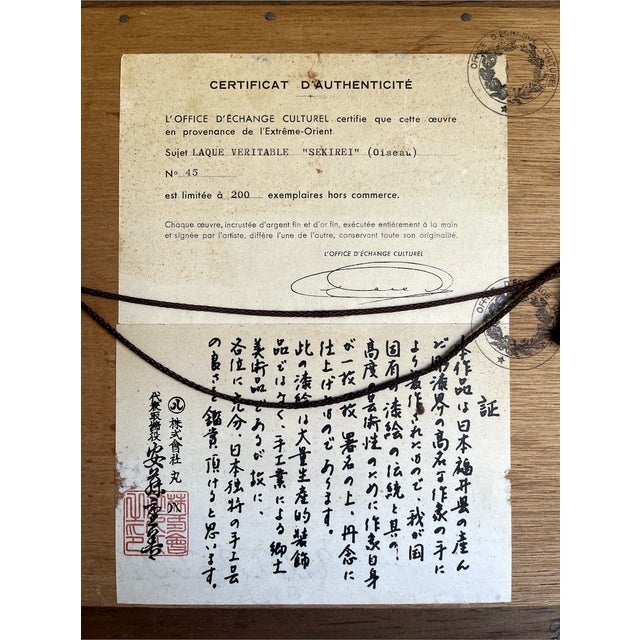 OFFICE D'ÉCHANGE CULTUREL
CERTIFICAT D'AUTHENTICITÉ
L'OFFICE D'ÉCHANGE CULTUREL certifie que cette œuvre
en provenance de l'Extrême-Orient
Sujet LAQUE VERITABLE "SEKIREI" (Oiseau)
No 45
est limitée à 200 exemplaires hors commerce.
Chaque œuvre, incrustée d'argent fin et d'or fin, exécutée entièrement à la main
et signée par l'artiste, diffère l'une de l'autre, conservant toute son originalité.
L'OFFICE D'ÉCHANGE CULTUREL
証
本作品は日本福井県の産ん
だ 漆界の高名な作家の手に
より 作されたもので、我が国
固有の漆絵の伝統と其の
高度の芸術性のために作家自身
が一枚一枚署名の上、丹念に
仕上げたものであります。
此の漆絵は大量生産的装飾
品ではなく、手工業による郷土
美術品であるが故に、
各位に充分、日本独特の手工芸
の良さを鑑賞頂けると思います。
株式會社 丸八
代表取締役